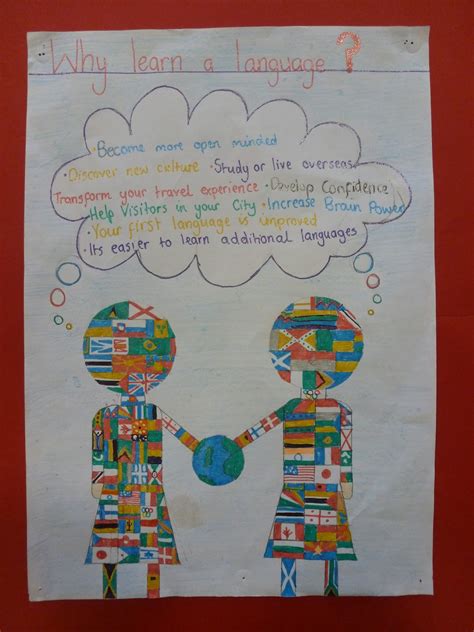 Why learn a language?
• Become more open minded
• Discover new culture • Study or live overseas
Transform your travel experience • Develop Confidence
Help Visitors in your City • Increase Brain Power
• Your first language is improved
• Its easier to learn additional languages